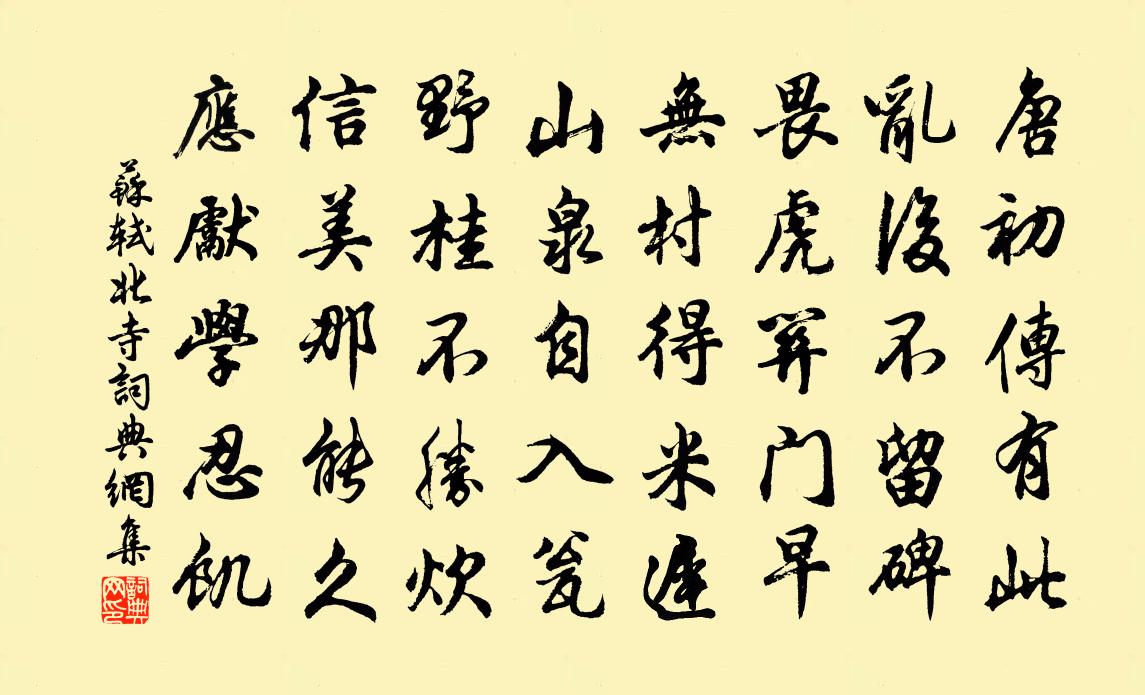 唐初傳有此
亂後不留碑
畏虎關门早
無村得米遲
山泉自入瓮
野桂不勝炊
信美那能久
應獻學忍飢
蘇軾北寺詞典網集
詞典网印